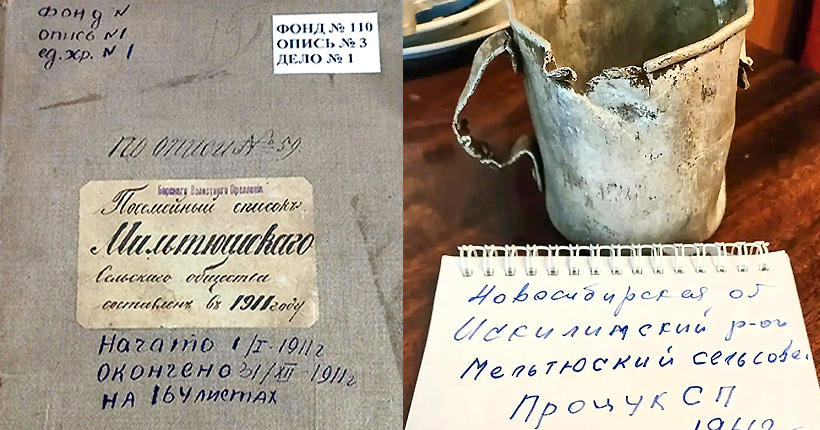 Фонд N
опись N1
ед.хр. N 1
ФОНД № 110
ОПИСЬ № 3
ДЕЛО № 1
по описи № 59
Бороваго Волостного Правленія
Посемейный списокъ
Мильтюшскаго
Сельскаго общества
составленъ въ 1911 году
Начато 1/I-1911г
окончено 31/XII-1911г
на 164 листах
Новосибирская об
Искилимский р-он
Мельтюский сельсове
Процук С П
1911г